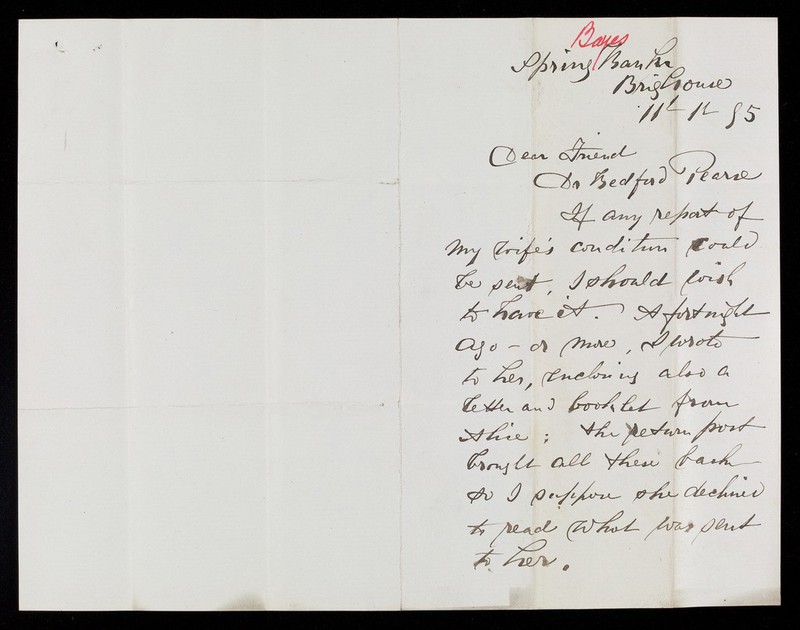 Bayes
Spring Bank
Brighouse
11th 1st 95
Dear Friend
Dr Bedford Pearse
If any report of
my wife's condition could
be sent, I should wish
to have it. A fortnight
ago - or more, I wrote
to her, enclosing also a
letter and booklet from
Alice; the return post
brought all these back
so I suppose she declined
to read what was sent
to her.